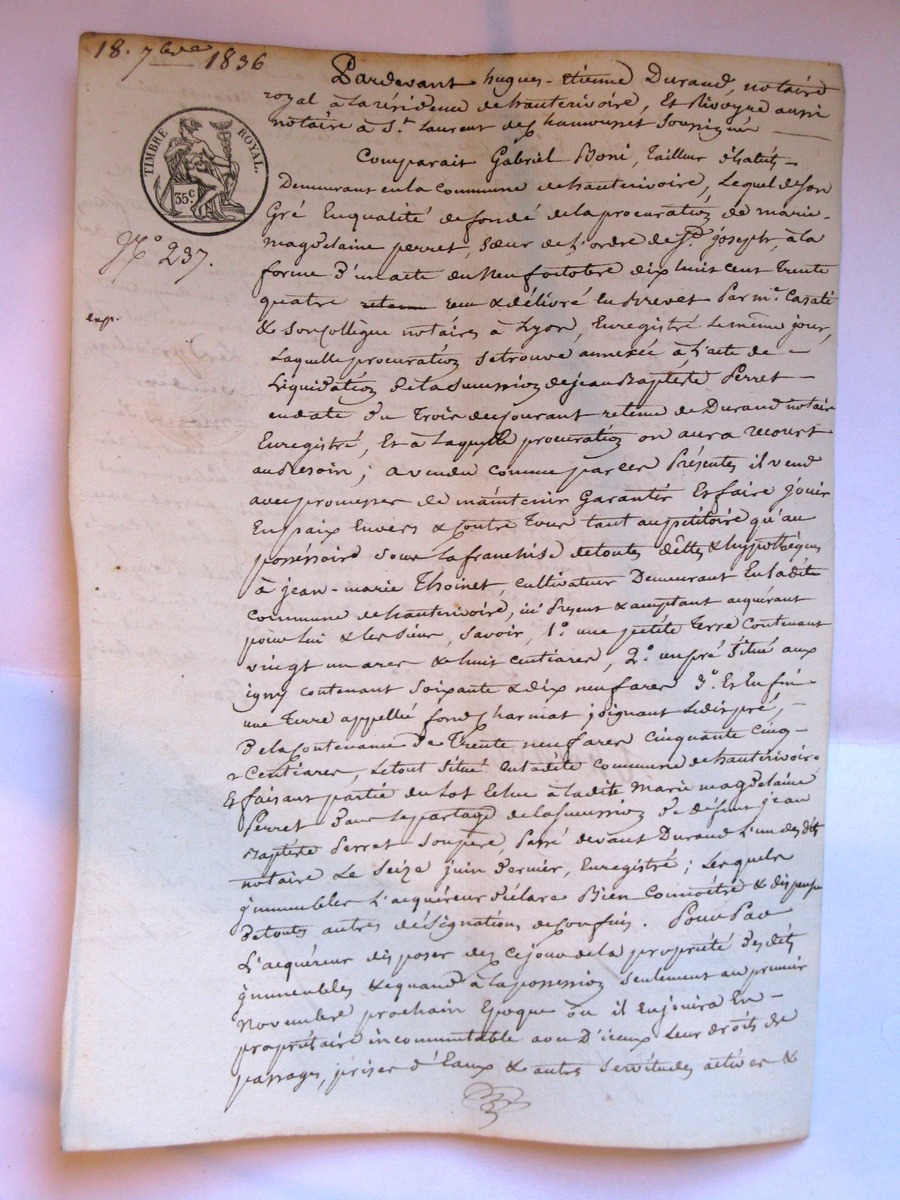 18. 7bre 1836
Pardevant hugues-Etienne Durand, notaire
royal à la résidence de hauterivoire, Et Rivoyre aussi
notaire à St. Laurent de Chamousset Soussignés
TIMBRE ROYAL.
35 c
Comparait Gabriel Boni, Tailleur d'habits
Demeurant en la Commune de hauterivoire, Lequel de Son
Gré En qualité de fondé de la procuration de marie-
N° 237.
magdelaine perret, Sœur de L'ordre de St. joseph, à la
forme d'un acte du Neuf octobre dix huit cent Trente
exp.
quatre reçu & délivré En Brevet Par me. Casati
& Son Collègue notaires à Lyon, Enregistré Le même jour,
Laquelle procuration Se trouve annexée à L'acte de
Liquidation de la Succession de jean Baptiste Perret
en date du Trois du Courant retenu de Durand notaire
Enregistré, Et à Laquelle procuration on aura recourt
au Besoin ; a vendu comme par ces Présentes il vend
avec promesse de maintenir Garantir Et faire jouir
En paix Envers & Contre Tous tant au pétitoire qu'au
possessoire Sous La franchise de toutes dêttes & hypothèques
à jean-marie Thoinet, cultivateur Demeurant En ladite
commune de hauterivoire, ici Présent & acceptant acquérant
pour Lui & les Siens, Savoir, 1°. une petite Terre Contenant
vingt un ares & huit Centiares, 2°. un pré Situé aux
igny contenant Soixante & dix neuf ares 3°. Et Enfin
une Terre appellée fond Charmat joignant Ledit pré,
De la Contenance de Trente neuf ares Cinquante Cinq
Centiares, Le tout Situé En ladite commune de hauterivoire
Et faisant partie du Lot Echu à ladite Marie magdelaine
Perret Dans Le partage de la Succession de défunt jean
Baptiste Perret Son père, Passé devant Durand L'un des dits
notaire Le Seize juin dernier, Enregistré ; Lesquels
immeubles L'acquéreur déclare Bien Connoître & dispense
de toutes autres désignations de Confins. Pour Par
L'acquéreur disposer dez Ce jour de la propriété desdits
immeubles & quand à la possession Seulement au premier
Novembre prochain Epoque où il En jouira En
propriétaire incommutable avec D'iceux Leur droits de
passages, prises d'Eaux & autres Servitudes actives &